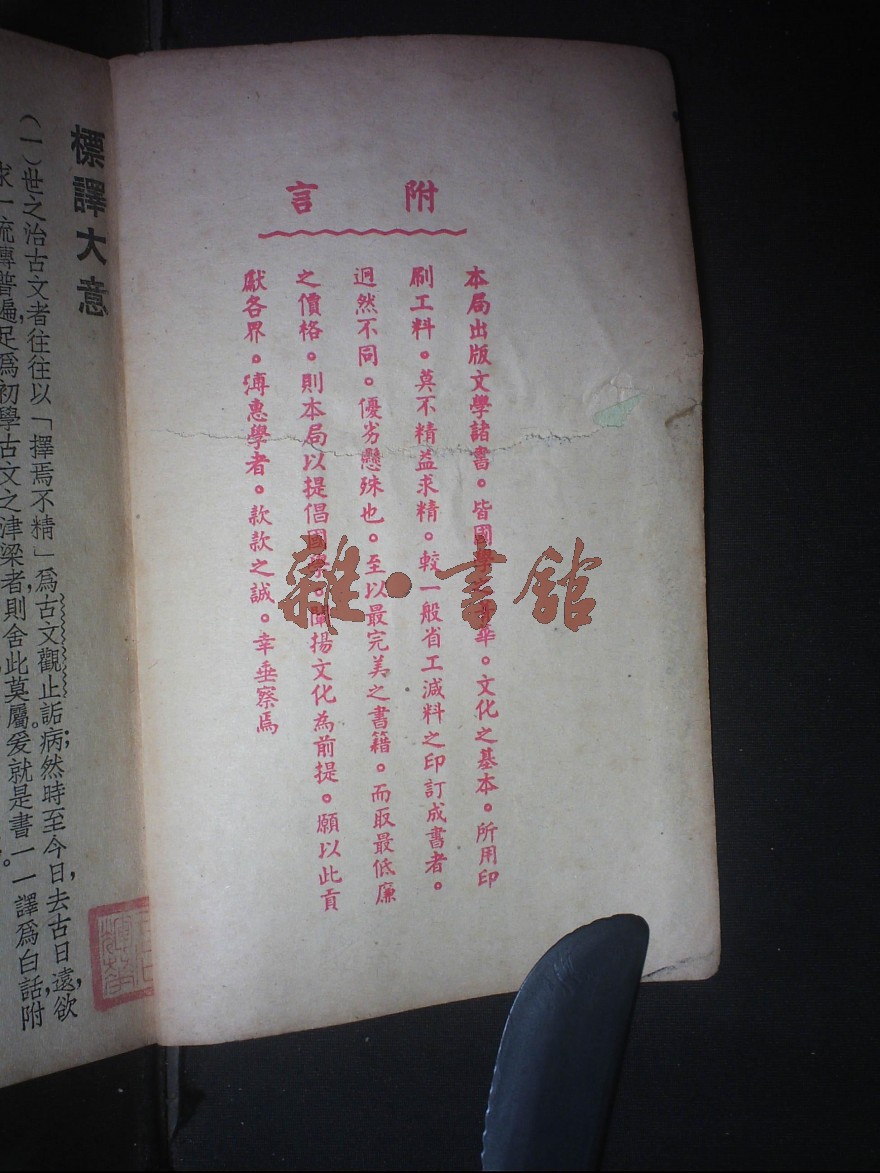 附言
本局出版文學諸書。皆國學之菁華。文化之基本。所用印
刷工料。莫不精益求精。較一般省工減料之印訂成書者。
迥然不同。優劣懸殊也。至以最完美之書籍。而取最低廉
之價格。則本局以提倡國學。闡揚文化為前提。願以此貢
獻各界。溥惠學者。款款之誠。幸垂察焉
雜·書館
標譯大意
(一)世之治古文者往往以「擇焉不精」爲古文觀止詬病;然時至今日,去古日遠,欲
求一流傳普遍,足爲初學古文之津梁者,則舍此莫屬。爰就是書一一譯爲白話,附